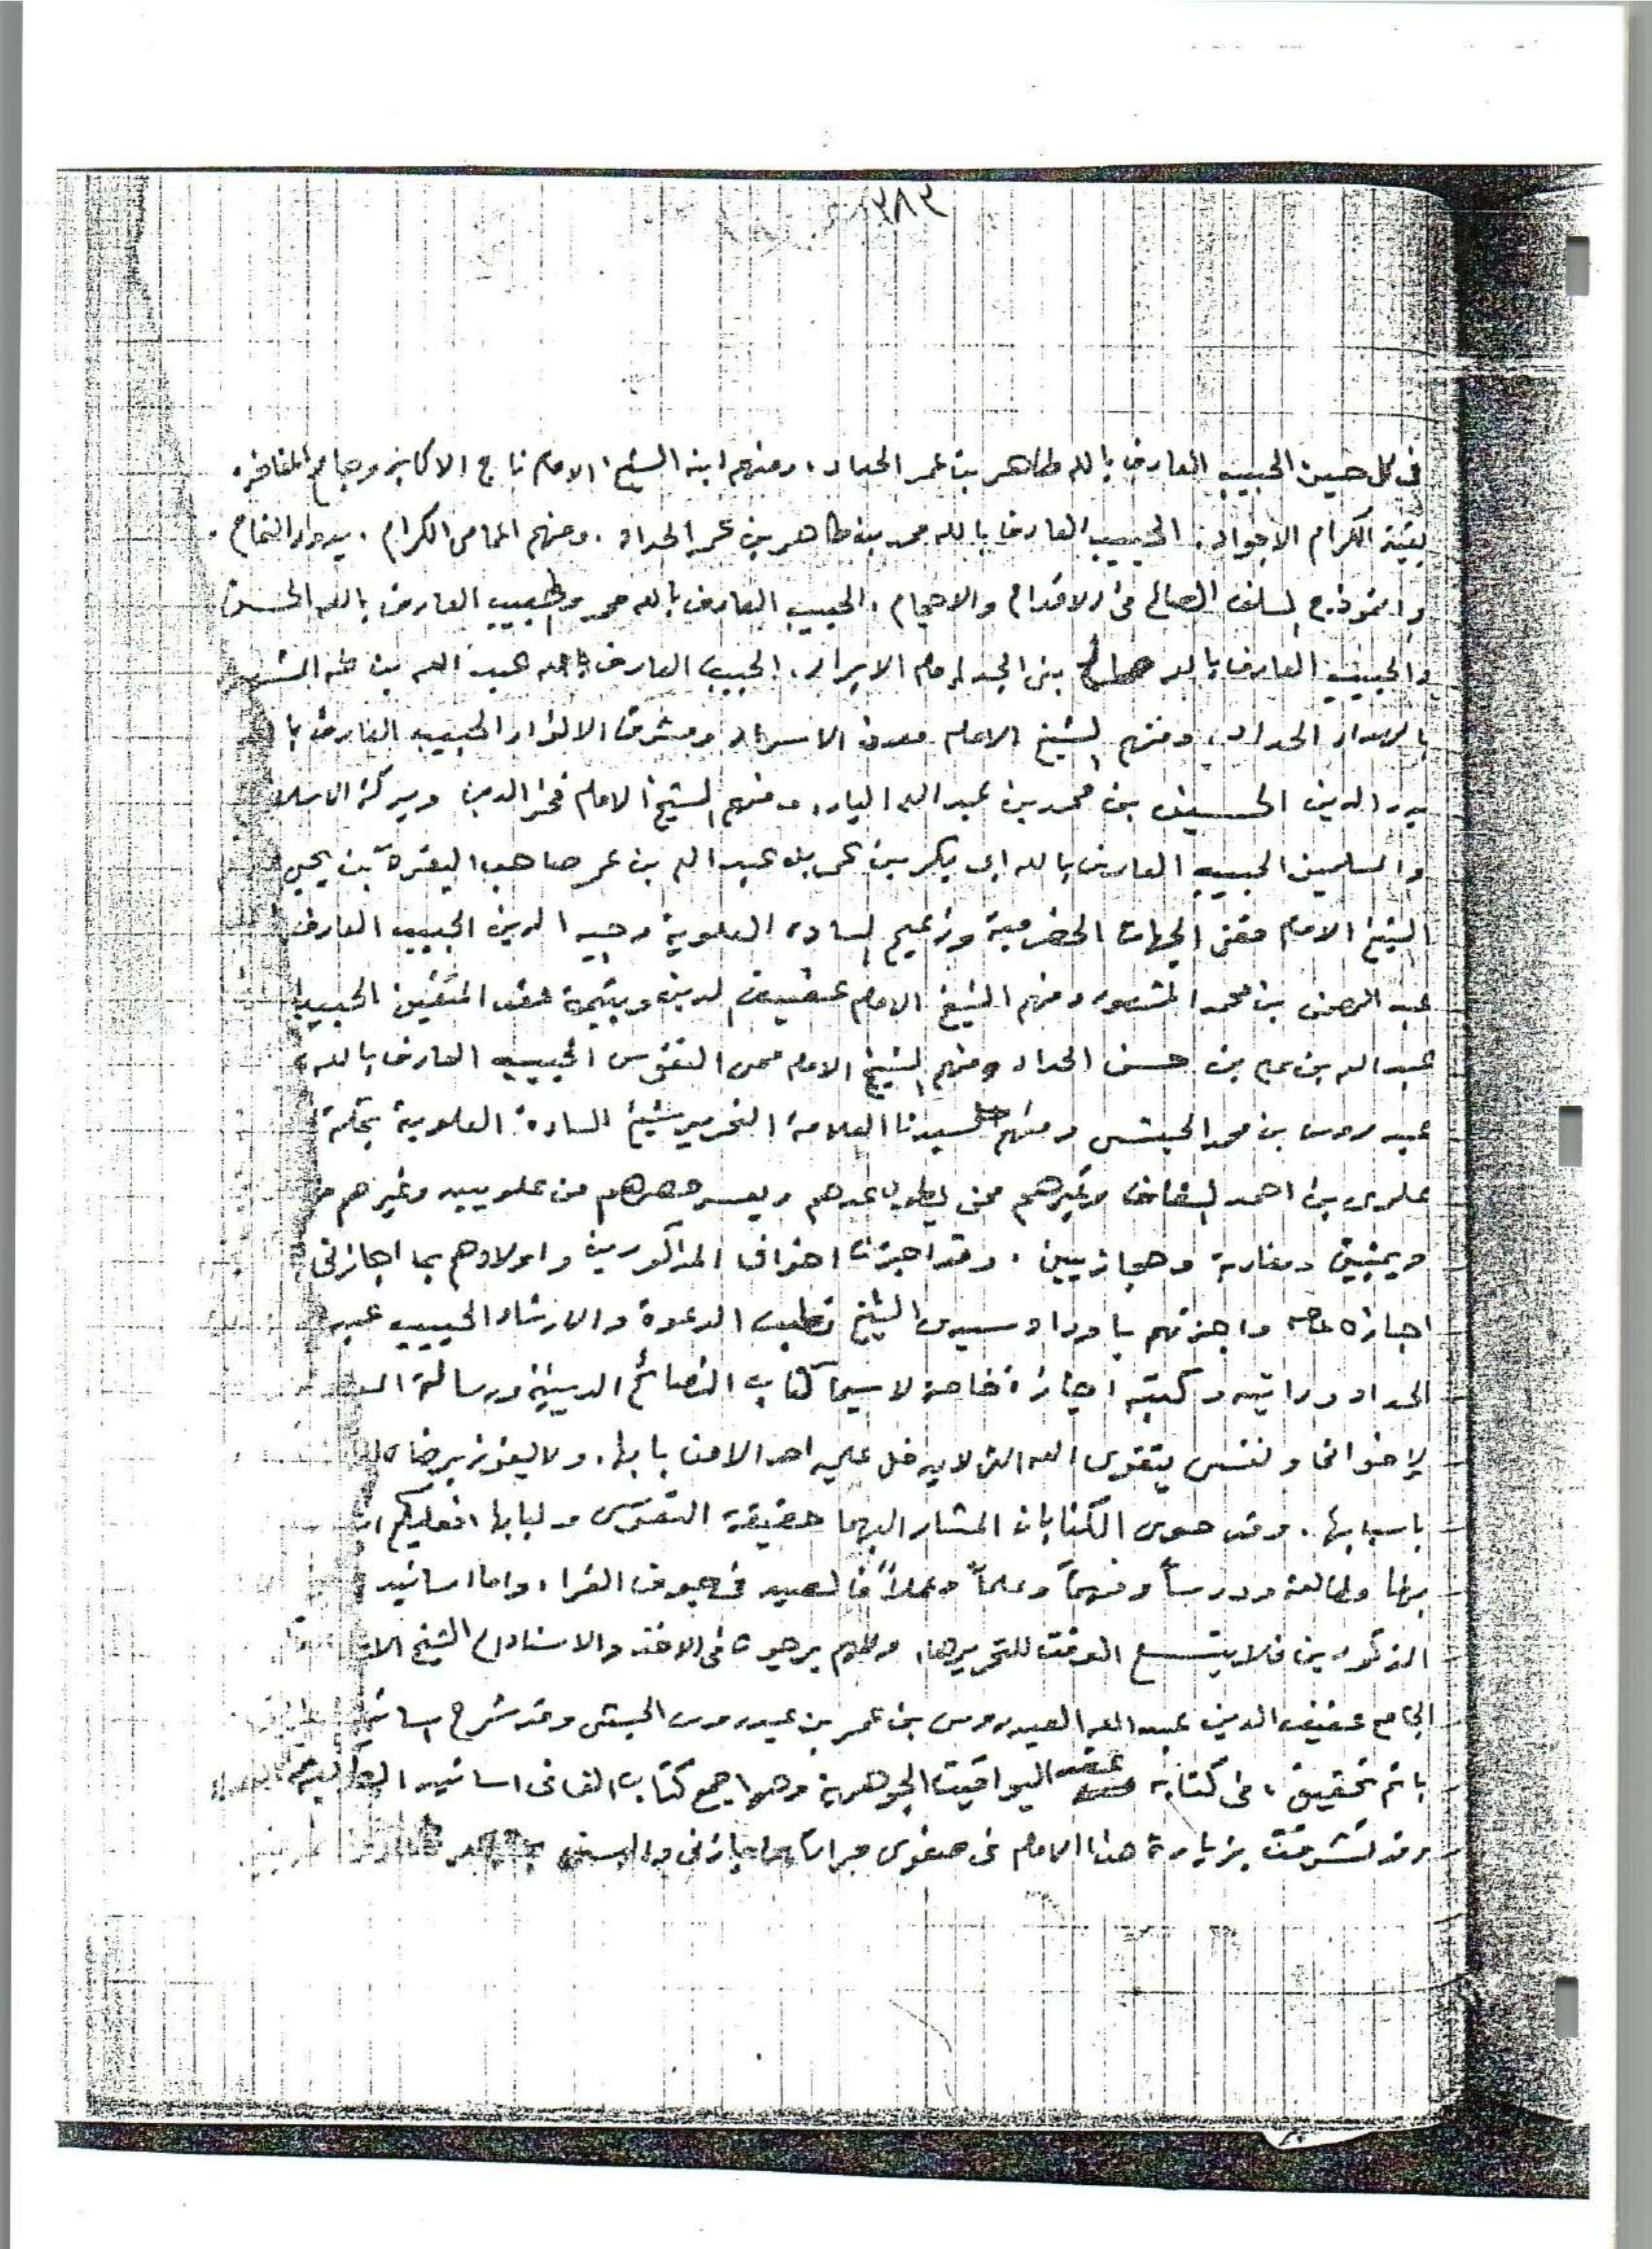 ٣٨٣
في كل حين الحبيب العارف بالله طاهر بن عمر الحداد، ومنهم ابنه الشيخ الامام تاج الاكابر وجامع المفاخر.
بقية الكرام الاجواد. الحبيب العارف بالله محمد بن طاهر بن عمر الحداد. ومنهم المامى الكرام. بدور التمام.
وانموذج السلف الصالح في الاقدام والاحجام. الحبيب العارف بالله عمر والحبيب العارف بالله الحسن
والحبيب العارف بالله صالح بني الجد امام الابرار. الحبيب العارف بالله عبد الله بن طه الشهير
بالهدار الحداد، ومنهم الشيخ الامام معدن الاسرار ومشرق الانوار الحبيب العارف با
بدر الدين الحسين بن محمد بن عبد الله البار، ومنهم الشيخ الامام فخر الدين وبركة الاسلا
والمسلمين الحبيب العارف بالله ابي بكر بن عمر بن عبد الله بن عمر صاحب البقرة بن يحيى
الشيخ الامام مفتي الجهات الحضرمية وزعيم السادة العلوية وجيه الدين الحبيب العارف
عبد الرحمن بن محمد المشهور ومنهم الشيخ الامام عفيف الدين ويتيمة عقد المتقين الحبيب
عبد الله بن علي بن حسن الحداد ومنهم الشيخ الامام محي النفوس الحبيب العارف بالله
عيدروس بن محمد الحبشي ومنهم سيدنا العلامة النحرير شيخ السادة العلوية بمكة
علوي بن احمد السقاف وغيرهم ممن يطول عدهم ويعسر حصرهم من علويين وغيرهم
ويمنيين ومغاربة وحجازيين. وقد اجزت اخواني المذكورين واولادهم بما اجازني
اجازة عامة واجزتهم باوراد سيدي الشيخ قطب الدعوة والارشاد الحبيب عبد
الحداد وراتبه وكتبه اجازة خاصة لا سيما كتاب النصائح الدينية ورسالة الم
لإخواني ونفسي بتقوى الله التي لا يدخل عليه احد الا من بابها. ولا يفوز برضاه الا
باسبابها. وقد حوى الكتابان المشار اليهما حقيقة التقوى ولبابها فعليكم
بهما مطالعة ودرساً وفهماً وعلماً وعملاً فالصيد في جوف الفرا، واما اسانيد
المذكورين فلا يتسع الوقت لتحريرها، وكلهم يرجعون في الاخذ والاسناد الى الشيخ الا
الجامع عفيف الدين عبد الله العيدروس بن عمر بن عيدروس الحبشي وقد شرح اسانيد
باتم تحقيق، في كتابه عقد اليواقيت الجوهرية وهو اجمع كتاب الف في اسانيد
وقد تشرفت بزيارة هذا الامام في صغري مرارا واجازني والبسني